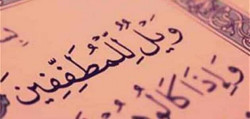 وَيْلٌ لِّلْمُطَفِّفِينَ
وَإِذَا كَالُوهُمْ